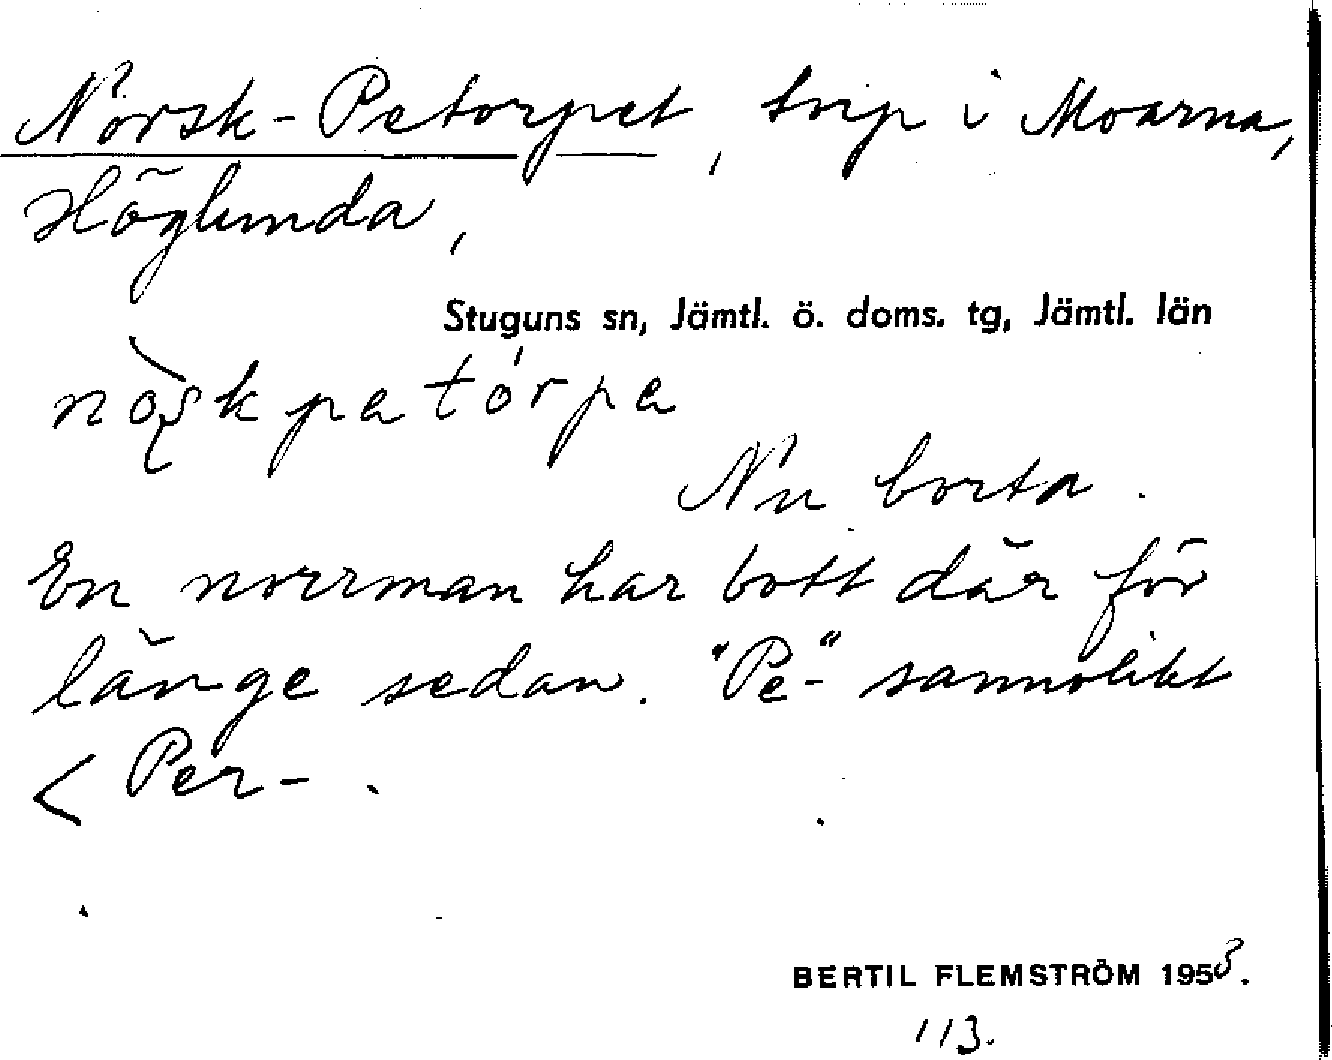 Norsk-Petorpet, torp i Moarna,
Höglunda,
Stuguns sn, Jämtl. ö. doms. tg, Jämtl. län
Nu borta.
En norrman har bott där för
länge sedan. "Pe-" sannolikt
< Per-.
BERTIL FLEMSTRÖM 1953.
113.